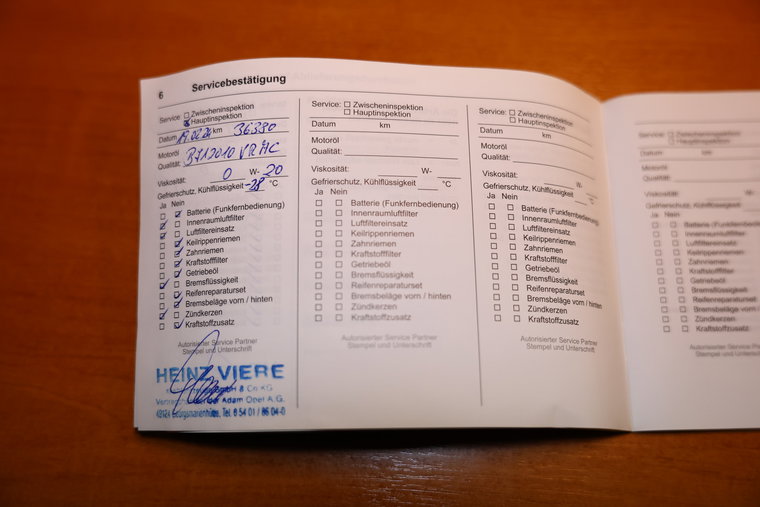 6 Servicebestätigung
Service: Zwischeninspektion
Hauptinspektion
Datum 19.02.21 km 36330
Motoröl
Qualität:
Viskosität: 0 W- 20
Gefrierschutz, Kühlflüssigkeit -28 °C
Ja Nein
Batterie (Funkfernbedienung)
Innenraumluftfilter
Luftfiltereinsatz
Keilrippenriemen
Zahnriemen
Kraftstofffilter
Getriebeöl
Bremsflüssigkeit
Reifenreparaturset
Bremsbeläge vorn / hinten
Zündkerzen
Kraftstoffzusatz
Autorisierter Service Partner
Stempel und Unterschrift
HEINZ VIERE
& Co KG
Adam Opel A.G.
Georgsmarienhütte, Tel. 0 54 01 / 86 04-0
Service: Zwischeninspektion
Hauptinspektion
Datum km
Motoröl
Qualität:
Viskosität: W-
Gefrierschutz, Kühlflüssigkeit °C
Ja Nein
Batterie (Funkfernbedienung)
Innenraumluftfilter
Luftfiltereinsatz
Keilrippenriemen
Zahnriemen
Kraftstofffilter
Getriebeöl
Bremsflüssigkeit
Reifenreparaturset
Bremsbeläge vorn / hinten
Zündkerzen
Kraftstoffzusatz
Autorisierter Service Partner
Stempel und Unterschrift
Service: Zwischeninspektion
Hauptinspektion
Datum km
Motoröl
Qualität:
Viskosität: W-
Gefrierschutz, Kühlflüssigkeit °C
Ja Nein
Batterie (Funkfernbedienung)
Innenraumluftfilter
Luftfiltereinsatz
Keilrippenriemen
Zahnriemen
Kraftstofffilter
Getriebeöl
Bremsflüssigkeit
Reifenreparaturset
Bremsbeläge vorn / hinten
Zündkerzen
Kraftstoffzusatz
Autorisierter Service Partner
Stempel und Unterschrift
Service: Zwischeninspektion
Hauptinspektion
Datum km
Motoröl
Qualität:
Viskosität: W-
Gefrierschutz, Kühlflüssigkeit
Ja Nein
Batterie (Funkfernbedienung)
Innenraumluftfilter
Luftfiltereinsatz
Keilrippenriemen
Zahnriemen
Kraftstofffilter
Getriebeöl
Bremsflüssigkeit
Reifenreparaturset
Bremsbeläge vorn / hinten
Zündkerzen
Kraftstoffzusatz
Autorisierter Service Partner
Stempel und Unterschrift